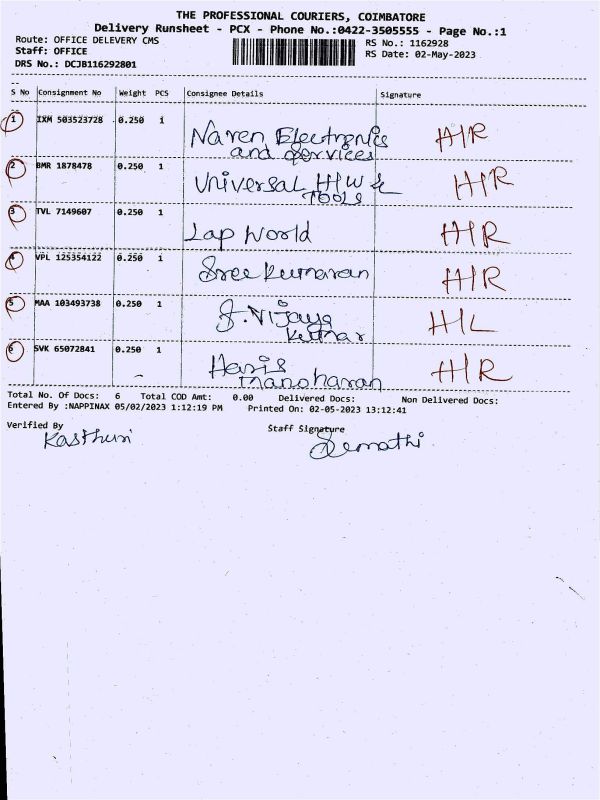 THE PROFESSIONAL COURIERS, COIMBATORE
Delivery Runsheet - PCX - Phone No.:0422-3505555 - Page No.:1
Route: OFFICE DELEVERY CMS RS No.: 1162928
Staff: OFFICE RS Date: 02-May-2023
DRS No.: DCJB116292801
S No Consignment No Weight PCS Consignee Details Signature
1 IXM 503523728 0.250 1 Naren Electronics and Services H/R
2 BMR 1878478 0.250 1 Universal H/W & TOOLS H/R
3 TVL 7149607 0.250 1 Lap World H/R
4 VPL 125354122 0.250 1 Sree Kumaran H/R
5 MAA 103493738 0.250 1 S. Vijaya Kumar H/L
6 SVK 65072841 0.250 1 Haris Manoharan H/R
Total No. Of Docs: 6 Total COD Amt: 0.00 Delivered Docs: Non Delivered Docs:
Entered By :NAPPINAX 05/02/2023 1:12:19 PM Printed On: 02-05-2023 13:12:41
Verified By Staff Signature
Kasthuri